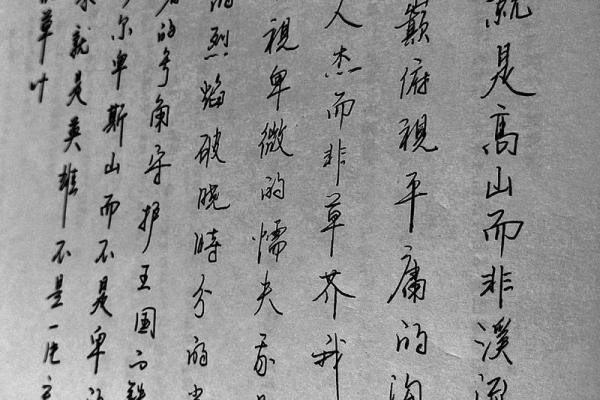 就是高山而非溪流
巅俯视平庸的沟
人杰而非草芥我
视卑微的懦夫我
的烈焰破晓时分的
的号角守护王国的
尔卑斯山而不是卑
就是英雄不是一
草叶